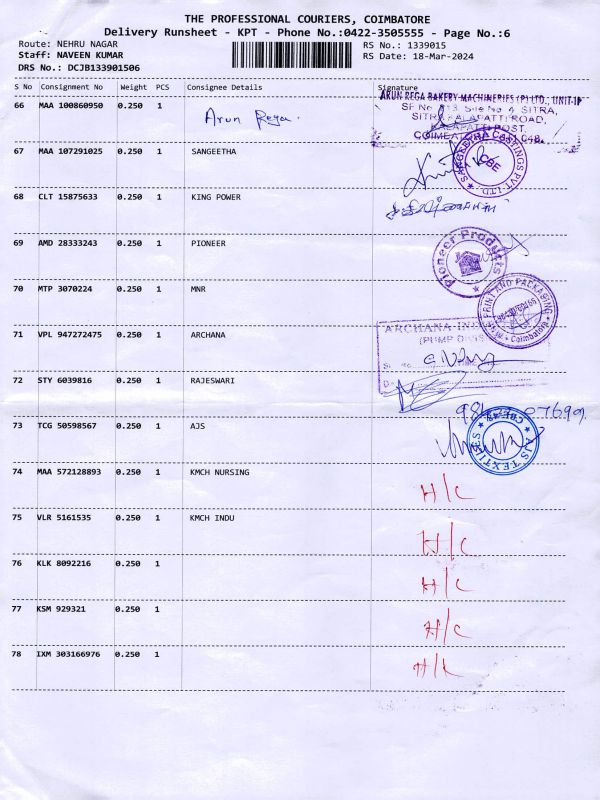 THE PROFESSIONAL COURIERS, COIMBATORE
Delivery Runsheet - KPT - Phone No.:0422-3505555 - Page No.:6
Route: NEHRU NAGAR RS No.: 1339015
Staff: NAVEEN KUMAR RS Date: 18-Mar-2024
DRS No.: DCJB133901506
S No Consignment No Weight PCS Consignee Details Signature
66 MAA 100860950 0.250 1 Arun Rega.
ARUN REGA BAKERY MACHINERIES (P) LTD., UNIT-II
SITRA KALAPATTI ROAD,
KALAPATTI POST,
67 MAA 107291025 0.250 1 SANGEETHA
SANGEETHA CASTINGS PVT LTD CBE
68 CLT 15875633 0.250 1 KING POWER
69 AMD 28333243 0.250 1 PIONEER
Pioneer Products
70 MTP 3070224 0.250 1 MNR
MNR PRINT AND PACKAGING Coimbatore
71 VPL 947272475 0.250 1 ARCHANA
ARCHANA
(PUMP DIVIS
72 STY 6039816 0.250 1 RAJESWARI
73 TCG 50598567 0.250 1 AJS
07699
AJS TEXTILES
74 MAA 572128893 0.250 1 KMCH NURSING H/C
75 VLR 5161535 0.250 1 KMCH INDU H/C
76 KLK 8092216 0.250 1 H/C
77 KSM 929321 0.250 1 H/C
78 IXM 303166976 0.250 1